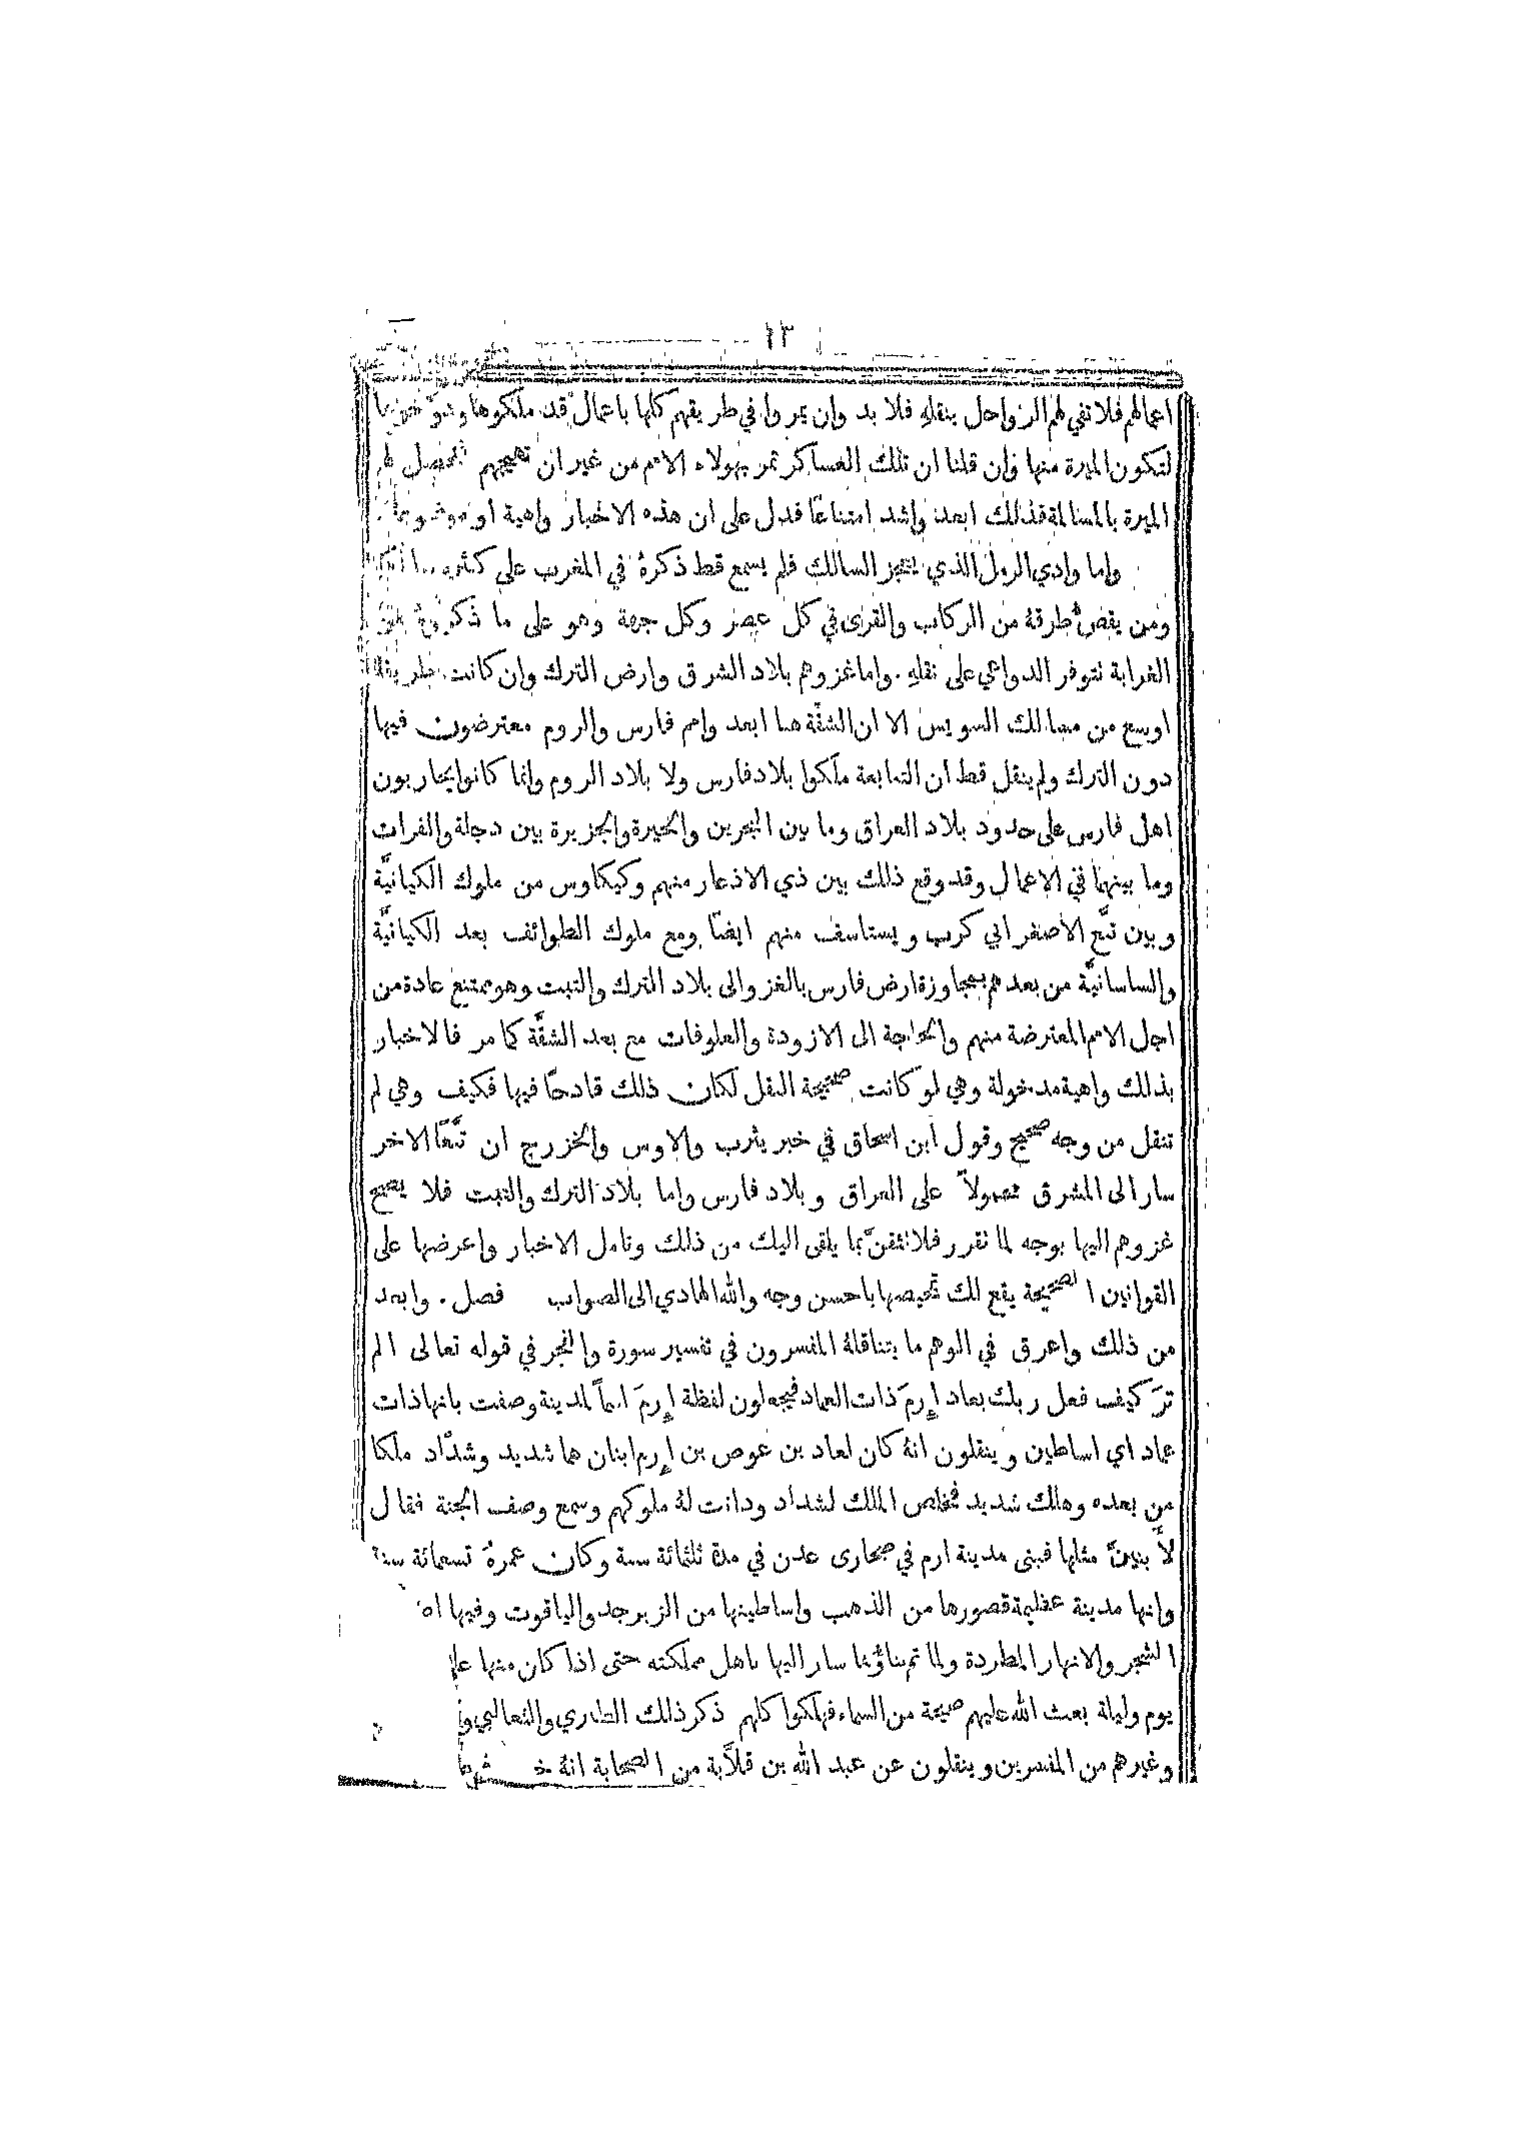 ١٣
اعمالهم فلا تفي لهم الرواحل بنقلهِ فلا بد وان يمروا في طريقهم كلها باعمال قد ملكوها ودوخوها
لتكون الميرة منها وان قلنا ان تلك العساكر تمر بهولاء الامم من غير ان تهيجهم فتحصل لهم
الميرة بالمسالمة فذلك ابعد واشد امتناعًا فدل على ان هذه الاخبار واهية او موضوعة
واما وادي الرمل الذي يعجز السالك فلم يسمع قط ذكرهُ في المغرب على كثرة
ومن يقص طرقهُ من الركاب والقرى في كل عصر وكل جهة وهو على ما ذكروهُ من
الغرابة نتوفر الدواعي على نقلهِ . واما غزوهم بلاد الشرق وارض الترك وان كانت طريقهُ
اوسع من مسالك السويس الا ان الشقَّة هنا ابعد وامم فارس والروم معترضون فيها
دون الترك ولم ينقل قط ان التبابعة ملكوا بلاد فارس ولا بلاد الروم وانما كانوا يحاربون
اهل فارس على حدود بلاد العراق وما بين البحرين والحيرة والجزيرة بين دجلة والفرات
وما بينهما في الاعمال وقد وقع ذلك بين ذي الاذعار منهم وكيكاوس من ملوك الكيانيَّة
وبين تبَّع الاصغر ابي كرب ويستاسف منهم ايضًا ومع ملوك الطوائف بعد الكيانيَّة
والساسانيَّة من بعدهم بمجاوزة ارض فارس بالغزو الى بلاد الترك والتبت وهو ممتنع عادة من
اجل الامم المعترضة منهم والحاجة الى الازودة والعلوفات مع بعد الشقَّة كما مر فالاخبار
بذلك واهية مدخولة وهي لو كانت صحيحة النقل لكان ذلك قادحًا فيها فكيف وهي لم
تنقل من وجه صحيح وقول ابن اسحاق في خبر يثرب والاوس والخزرج ان تبَّعًا الاخر
سار الى المشرق محمولاً على العراق وبلاد فارس واما بلاد الترك والتبت فلا يصح
غزوهم اليها بوجه لما نقرر فلا نثقنَّ بما يلقى اليك من ذلك وتامل الاخبار واعرضها على
القوانين الصحيحة يقع لك تمحيصها باحسن وجه والله الهادي الى الصواب فصل . وابعد
من ذلك واعرق في الوهم ما يتناقلهُ المفسرون في تفسير سورة والفجر في قوله تعالى الم
ترَ كيف فعل ربك بعاد إِرمَ ذات العماد فيجعلون لفظة إِرمَ اسماً لمدينة وصفت بانها ذات
عماد اي اساطين وينقلون انهُ كان لعاد بن عوص بن إِرم ابنان هما شديد وشدَّاد ملكا
من بعده وهلك شديد فخلص الملك لشداد ودانت لهُ ملوكهم وسمع وصف الجنة فقال
لأَبنينَّ مثلها فبنى مدينة ارم في صحارى عدن في مدة ثلثمائة سنة وكان عمرهُ تسعمائة سنة
وانها مدينة عظيمة قصورها من الذهب واساطينها من الزبرجد والياقوت وفيها
الشجر والانهار المطردة ولما تم بناؤُها سار اليها باهل مملكته حتى اذا كان منها على
يوم وليلة بعث الله عليهم صيحة من السماء فهلكوا كلهم ذكر ذلك الطبري والثعالبي
وغيرهم من المفسرين وينقلون عن عبد الله بن قلاَّبة من الصحابة انهُ خرج